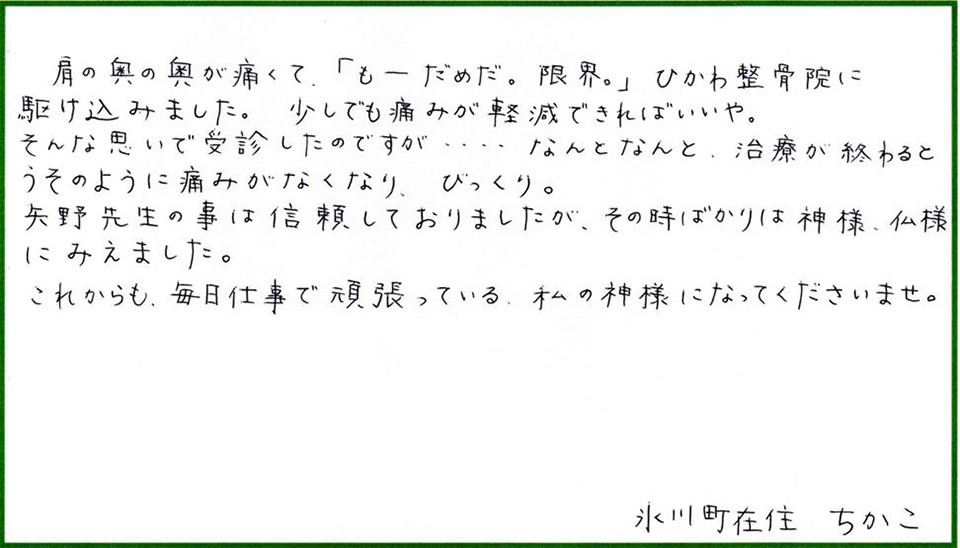 肩の奥の奥が痛くて、「もーだめだ。限界。」ひかわ整骨院に
駆け込みました。 少しでも痛みが軽減できればいいや。
そんな思いで受診したのですが‥‥なんとなんと、治療が終わると
うそのように痛みがなくなり、びっくり。
矢野先生の事は信頼しておりましたが、その時ばかりは神様、仏様
にみえました。
これからも、毎日仕事で頑張っている、私の神様になってくださいませ。
氷川町在住 ちかこ